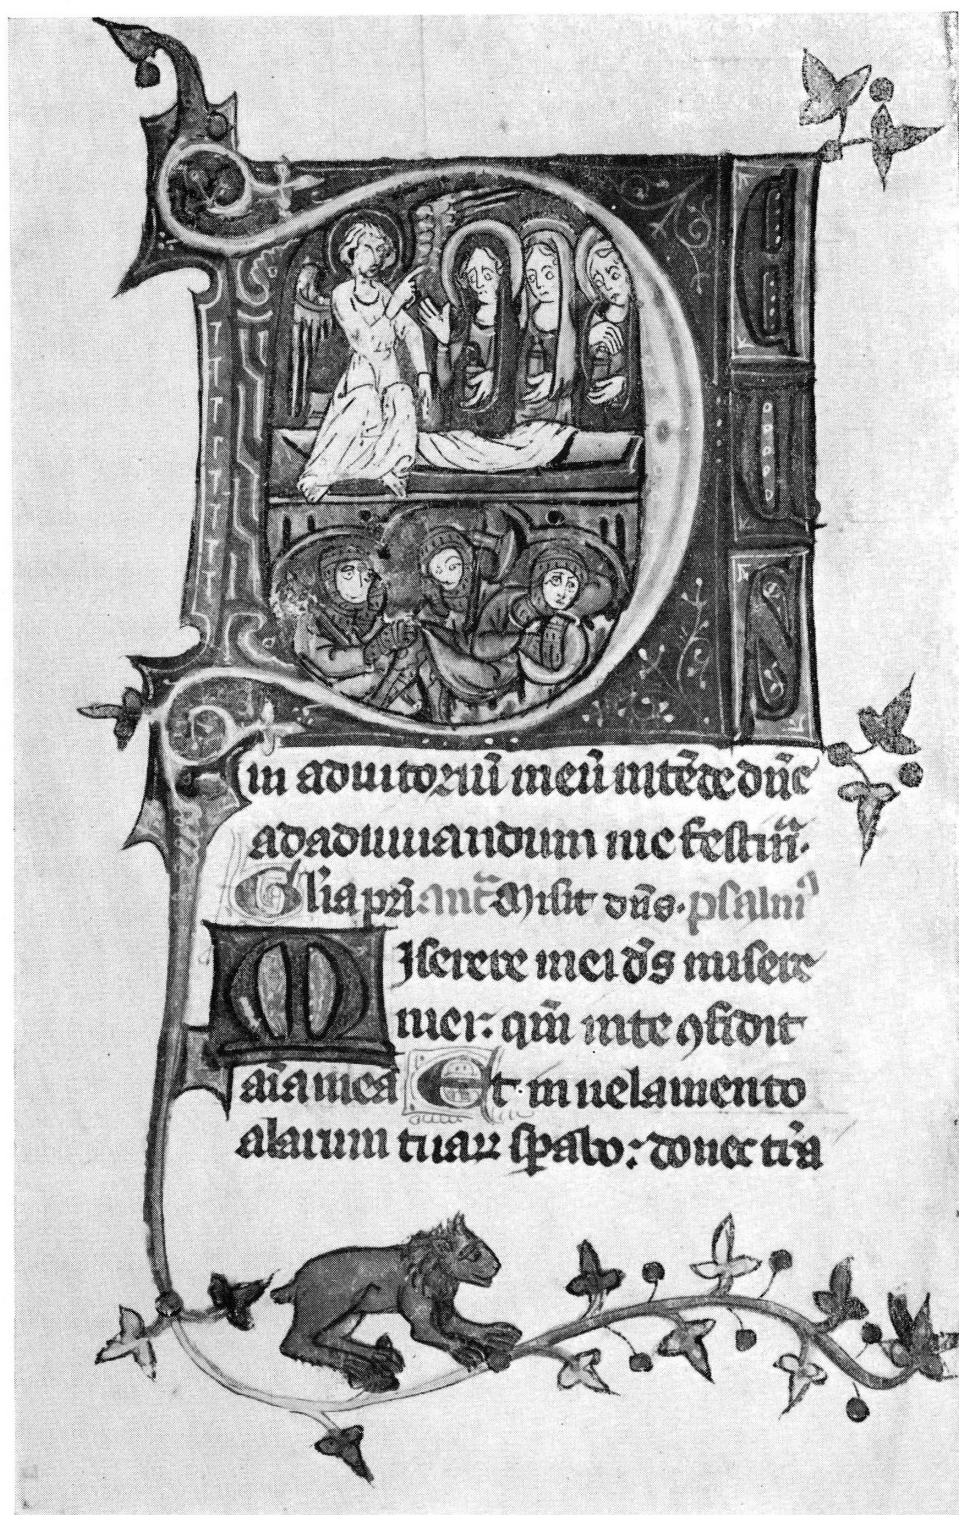 DEUS
in adiutoriū meū intēde dn̄e
ad adiuuandum me festin̄a.
Gl'ia pr̄i ant̄ Misit dn̄s. psalm'
Miserere mei ds̄ misere
mei: qm̄ in te ꝯfidit
aīa mea Et in uelamento
alarum tuaꝝ sp̄abo: donec tn̄a